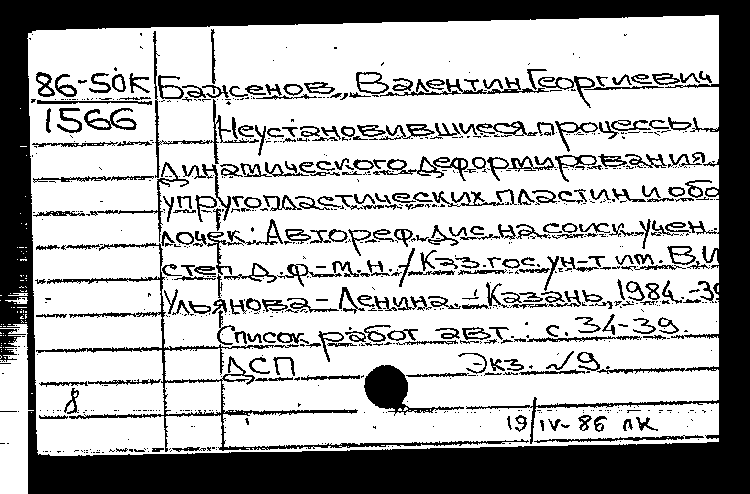 86-50К Баженов, Валентин Георгиевич
1566 Неустановившиеся процессы
динамического деформирования
упругопластических пластин и обо
лочек: Автореф. дис. на соиск учен.
степ. д. ф.-м. н. / Каз. гос. ун-т им. В.И
Ульянова-Ленина. - Казань, 1984. -39
Список работ авт.: с. 34-39.
ДСП Экз. №9.
8
19/IV-86 ПК